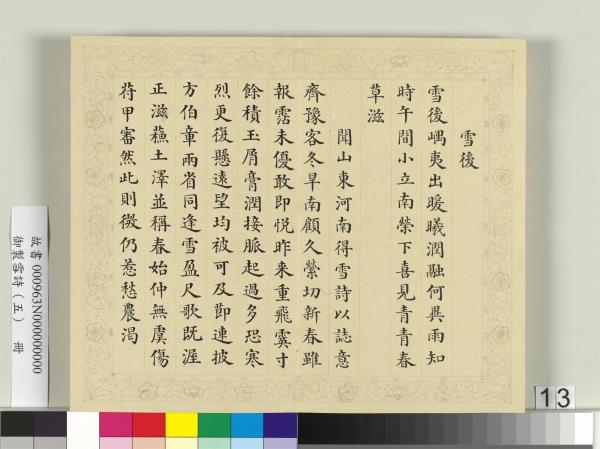 雪後
雪後嵎夷出暖曦潤融何異雨知
時午間小立南榮下喜見青青春
草滋
聞山東河南得雪詩以誌意
齊豫客冬旱南顧久縈切新春雖
報霑未優敢即悦昨来重飛霙寸
餘積玉屑膏潤接脈起過多恐寒
烈更復懸遠望均被可及節連披
方伯章兩省同逢雪盈尺歌既渥
正滋蘓土澤並稱春始仲無虞傷
莩甲審然此則微仍惹愁農渴
故書 000963N000000000
御製雪詩（五） 冊
13